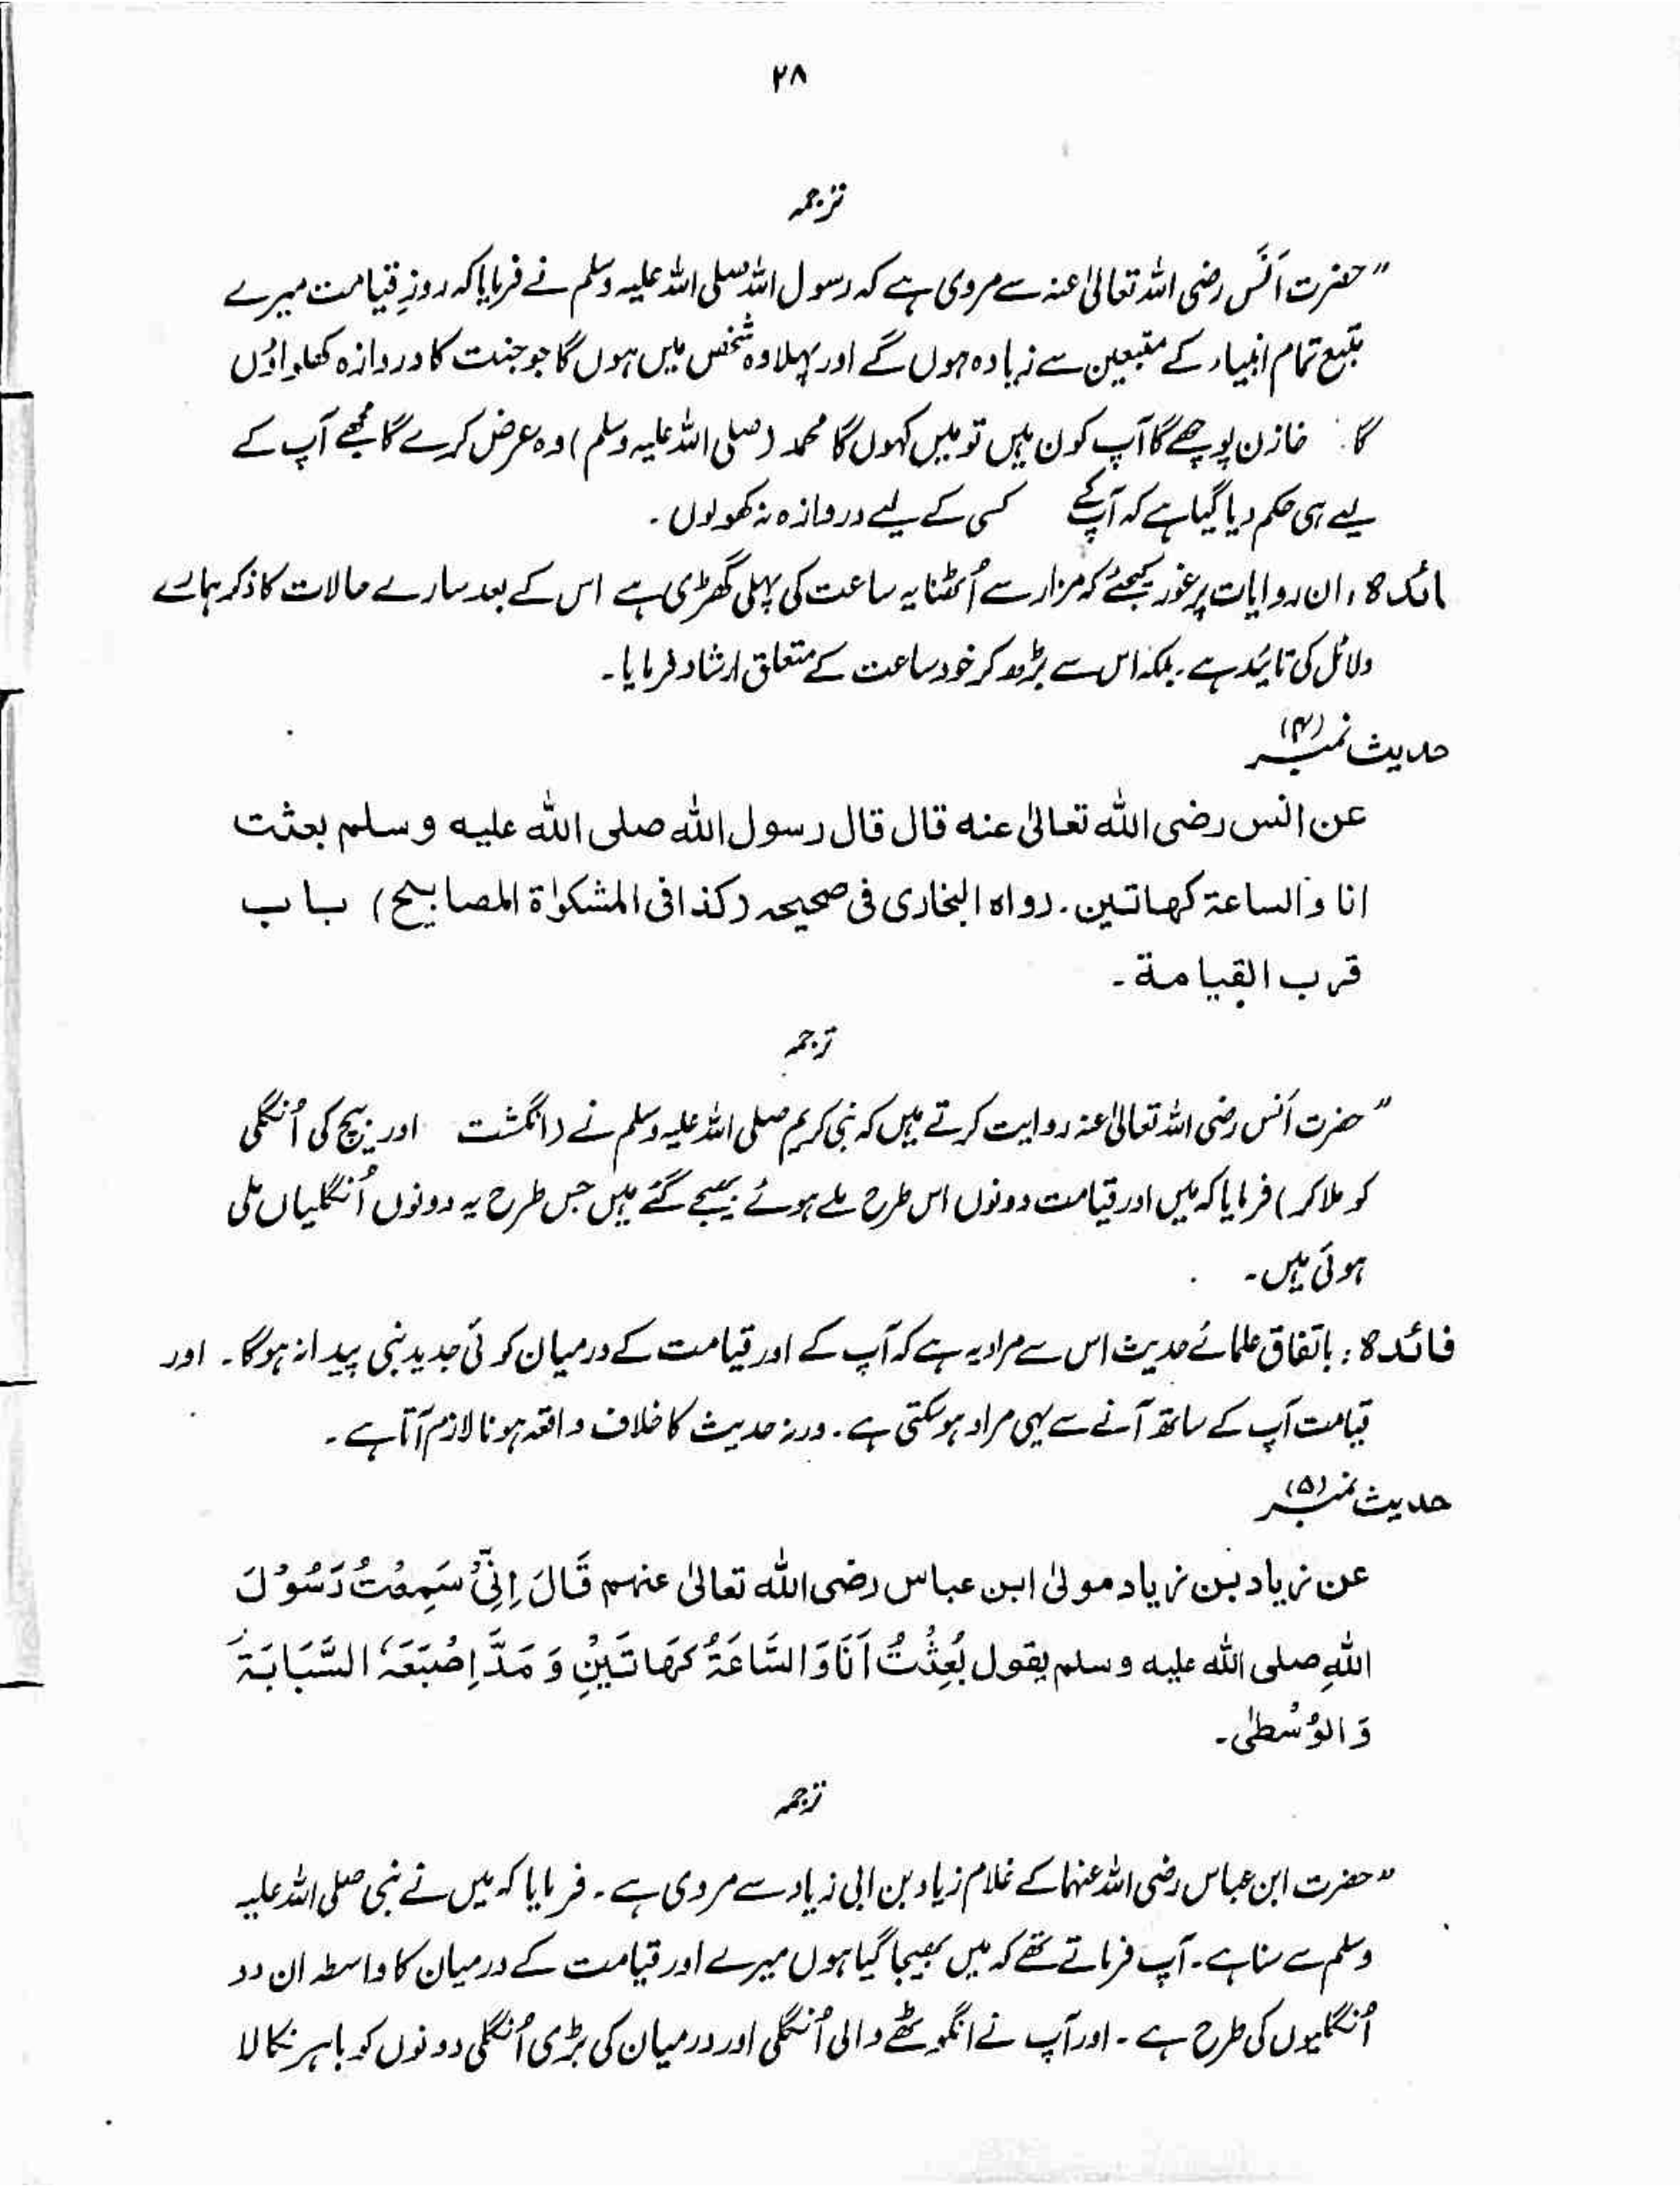 ۲۸
ترجمہ
”حضرت اَنَس رضی اللہ تعالیٰ عنہ سے مروی ہے کہ رسول اللہ صلی اللہ علیہ وسلم نے فرمایا کہ روزِ قیامت میرے
متبع تمام انبیاء کے متبعین سے زیادہ ہوں گے اور پہلا وہ شخص میں ہوں گا جو جنت کا دروازہ کھلواؤں
گا۔ خازن پوچھے گا آپ کون ہیں تو میں کہوں گا محمد (صلی اللہ علیہ وسلم) وہ عرض کرے گا مجھے آپ کے
لیے ہی حکم دیا گیا ہے کہ آپ کے کسی کے لیے دروازہ نہ کھولوں۔
ائدہ : ان روایات پر غور کیجئے کہ مزار سے اُٹھنا یہ ساعت کی پہلی گھڑی ہے اس کے بعد سارے حالات کا ذکر ہمارے
دلائل کی تائید ہے۔ بلکہ اس سے بڑھ کر خود ساعت کے متعلق ارشاد فرمایا۔
حدیث نمبر (۴)
عن انس رضی اللہ تعالیٰ عنہ قال قال رسول اللہ صلی اللہ علیہ وسلم بعثت
انا والساعۃ کھاتین۔ رواہ البخاری فی صحیحہ (کذا فی المشکوٰۃ المصابیح) باب
قرب القیامۃ۔
ترجمہ
”حضرت اَنس رضی اللہ تعالیٰ عنہ روایت کرتے ہیں کہ نبی کریم صلی اللہ علیہ وسلم نے (انگشت اور بیچ کی اُنگلی
کو ملا کر) فرمایا کہ میں اور قیامت دونوں اس طرح ملے ہوئے بھیجے گئے ہیں جس طرح یہ دونوں اُنگلیاں ملی
ہوئی ہیں۔
فائدہ : باتفاق علمائے حدیث اس سے مراد یہ ہے کہ آپ کے اور قیامت کے درمیان کوئی جدید نبی پیدا نہ ہوگا۔ اور
قیامت آپ کے ساتھ آنے سے یہی مراد ہو سکتی ہے۔ ورنہ حدیث کا خلاف واقعہ ہونا لازم آتا ہے۔
حدیث نمبر (۵)
عن زیاد بن زیاد مولیٰ ابن عباس رضی اللہ تعالیٰ عنہم قَالَ اِنِّیْ سَمِعْتُ رَسُوْلَ
اللہِ صلی اللہ علیہ وسلم یقول بُعِثْتُ اَنَا وَالسَّاعَۃُ کَھَاتَیْنِ وَ مَدَّ اِصْبَعَہٗ السَّبَابَۃَ
وَالوُسْطٰی۔
ترجمہ
”حضرت ابن عباس رضی اللہ عنہما کے غلام زیاد بن ابی زیاد سے مروی ہے۔ فرمایا کہ میں نے نبی صلی اللہ علیہ
وسلم سے سنا ہے۔ آپ فرماتے تھے کہ میں بھیجا گیا ہوں میرے اور قیامت کے درمیان کا واسطہ ان دو
اُنگلیوں کی طرح ہے۔ اور آپ نے انگوٹھے والی اُنگلی اور درمیان کی بڑی اُنگلی دونوں کو باہر نکالا